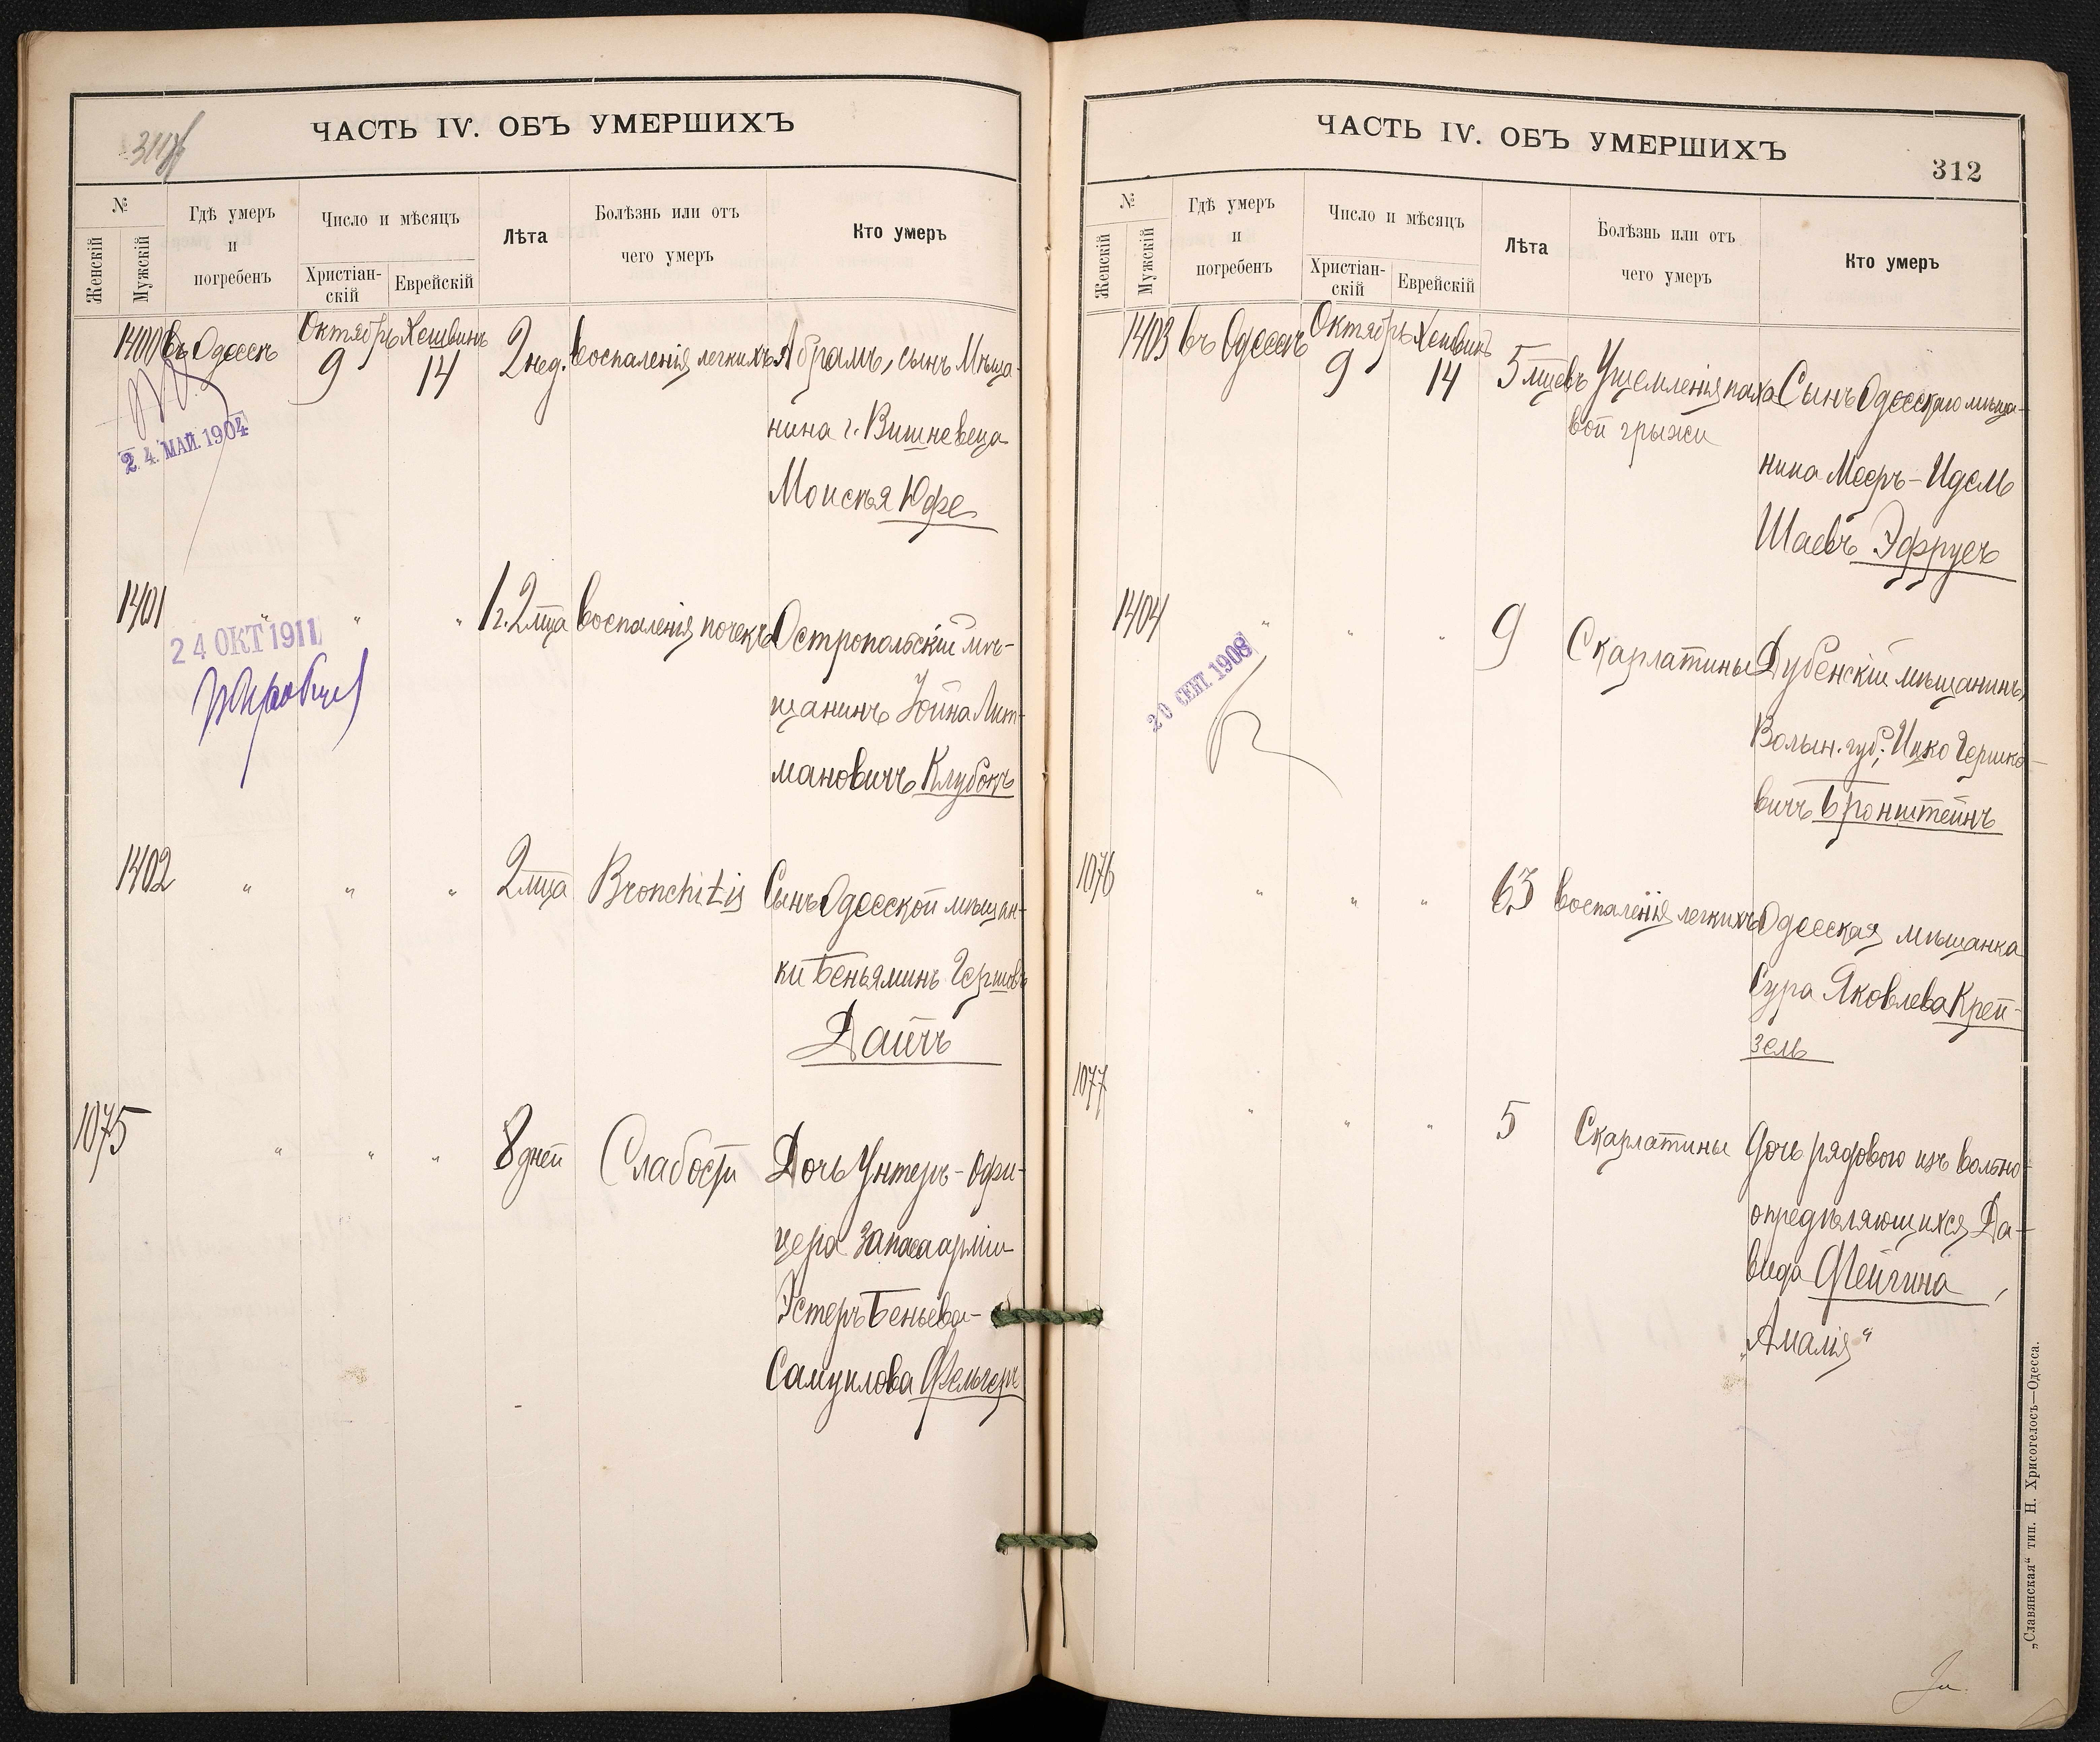 ЧАСТЬ IV. ОБЪ УМЕРШИХЪ
№
Женскій
Мужскій
Гдѣ умеръ
и
погребенъ
Число и мѣсяцъ
Христіан-
скій
Еврейскій
Лѣта
Болѣзнь или отъ
чего умеръ
Кто умеръ
1400 въ Одессѣ Октябрь 9 Хешвинъ 14 2 нед. Воспаленія легкихъ Абрамъ, сынъ Мѣща-
нина г. Вишневеца
Моисея Юфе
2 4. МАЙ. 1904
1401 " " " 1 г. 2 мца Воспаленія почекъ Остропольскій мѣ-
щанинъ Іойна Лит-
мановичъ Клубокъ
2 4 ОКТ 1911
1402 " " " 2 мца Bronchitis Сынъ Одесской мѣщан-
ки Беньяминъ Гершовъ
Дайчъ
1075 " " " 8 дней Слабости Дочь Унтеръ-Офи-
цера запаса арміи
Эстеръ Беньева-
Самуилова Фельчеръ
ЧАСТЬ IV. ОБЪ УМЕРШИХЪ
312
№
Женскій
Мужскій
Гдѣ умеръ
и
погребенъ
Число и мѣсяцъ
Христіан-
скій
Еврейскій
Лѣта
Болѣзнь или отъ
чего умеръ
Кто умеръ
1403 въ Одессѣ Октябрь 9 Хешвинъ 14 5 мцевъ Ущемленія пахо Сынъ Одесскаго мѣща-
вой грыжи
нина Мееръ-Идель
Шаевъ Эфрусъ
1404 " " " 9 Скарлатины Дубенскій мѣщанинъ,
Волын. губ., Ицко Гершко-
вичъ Бронштейнъ
20 СЕНТ. 1908
1076 " " " 63 Воспаленія легкихъ Одесская мѣщанка
Сура Яковлева Крей-
зель
1077 " " " 5 Скарлатины Дочь рядового изъ вольно-
опредѣляющихся Да-
вида Фейгина,
„Амалія"
„Славянская" тип. Н. Хрисогелосъ—Одесса.